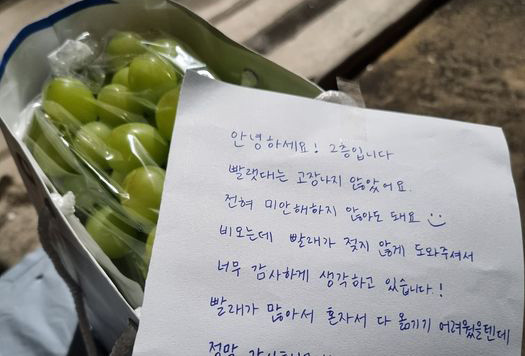 안녕하세요! 2층입니다
빨랫대는 고장나지 않았어요.
전혀 미안해하지 않아도 돼요
비오는데 빨래가 젖지 않게 도와주셔서
너무 감사하게 생각하고 있습니다.!
빨래가 많아서 혼자서 다 옮기기 어려웠을텐데
정말